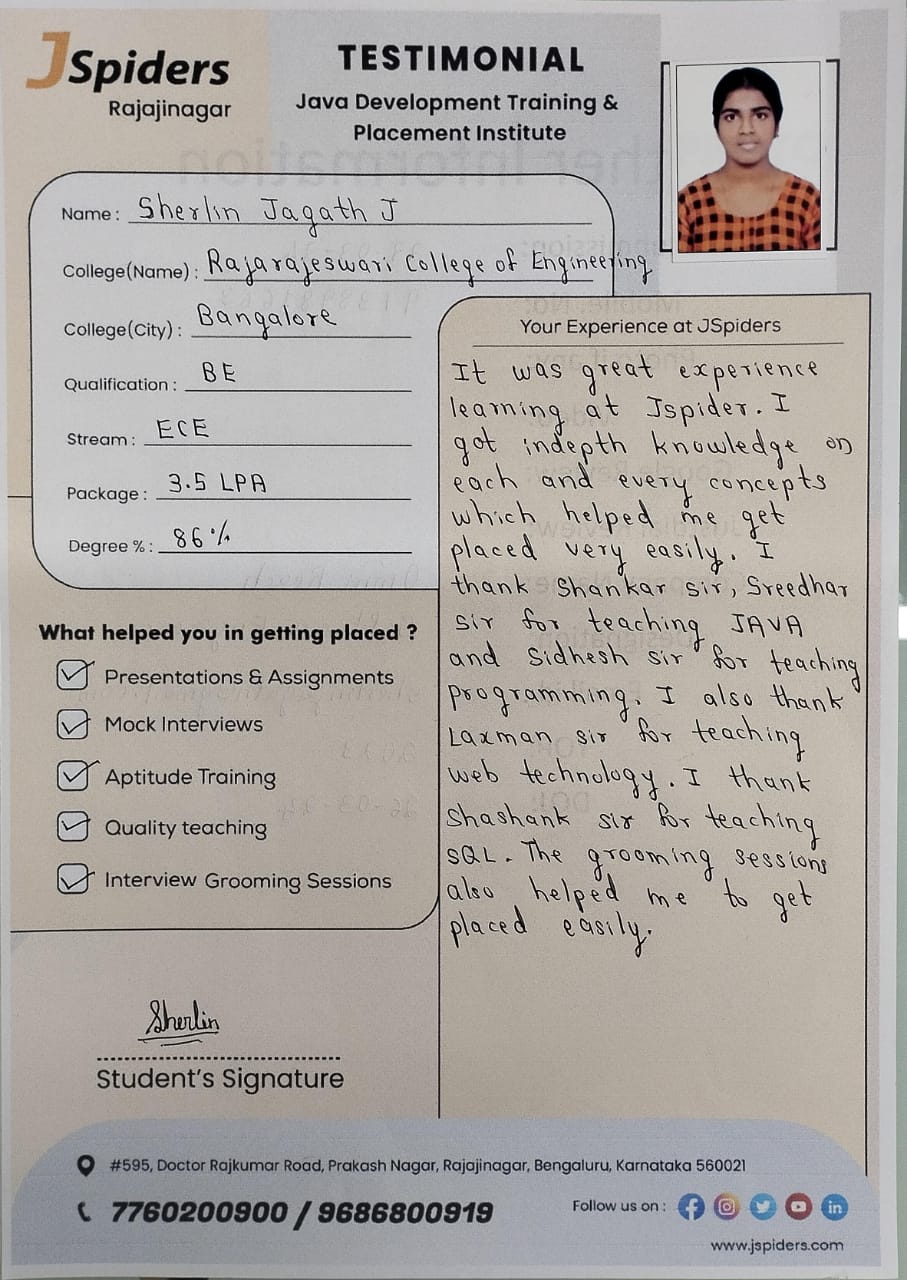 JSpiders
Rajajinagar
TESTIMONIAL
Java Development Training &
Placement Institute
Name : Sherlin Jagath J
College(Name) : Rajarajeswari College of Engineering
College(City) : Bangalore
Qualification : BE
Stream : ECE
Package : 3.5 LPA
Degree % : 86%
What helped you in getting placed ?
Presentations & Assignments
Mock Interviews
Aptitude Training
Quality teaching
Interview Grooming Sessions
Your Experience at JSpiders
It was great experience
learning at Jspider. I
got indepth knowledge on
each and every concepts
which helped me get
placed very easily. I
thank Shankar sir, Sreedhar
sir for teaching JAVA
and Sidhesh sir for teaching
programming. I also thank
Laxman sir for teaching
web technology. I thank
Shashank sir for teaching
SQL. The grooming sessions
also helped me to get
placed easily.
Sherlin
Student's Signature
#595, Doctor Rajkumar Road, Prakash Nagar, Rajajinagar, Bengaluru, Karnataka 560021
7760200900 / 9686800919
Follow us on :
www.jspiders.com